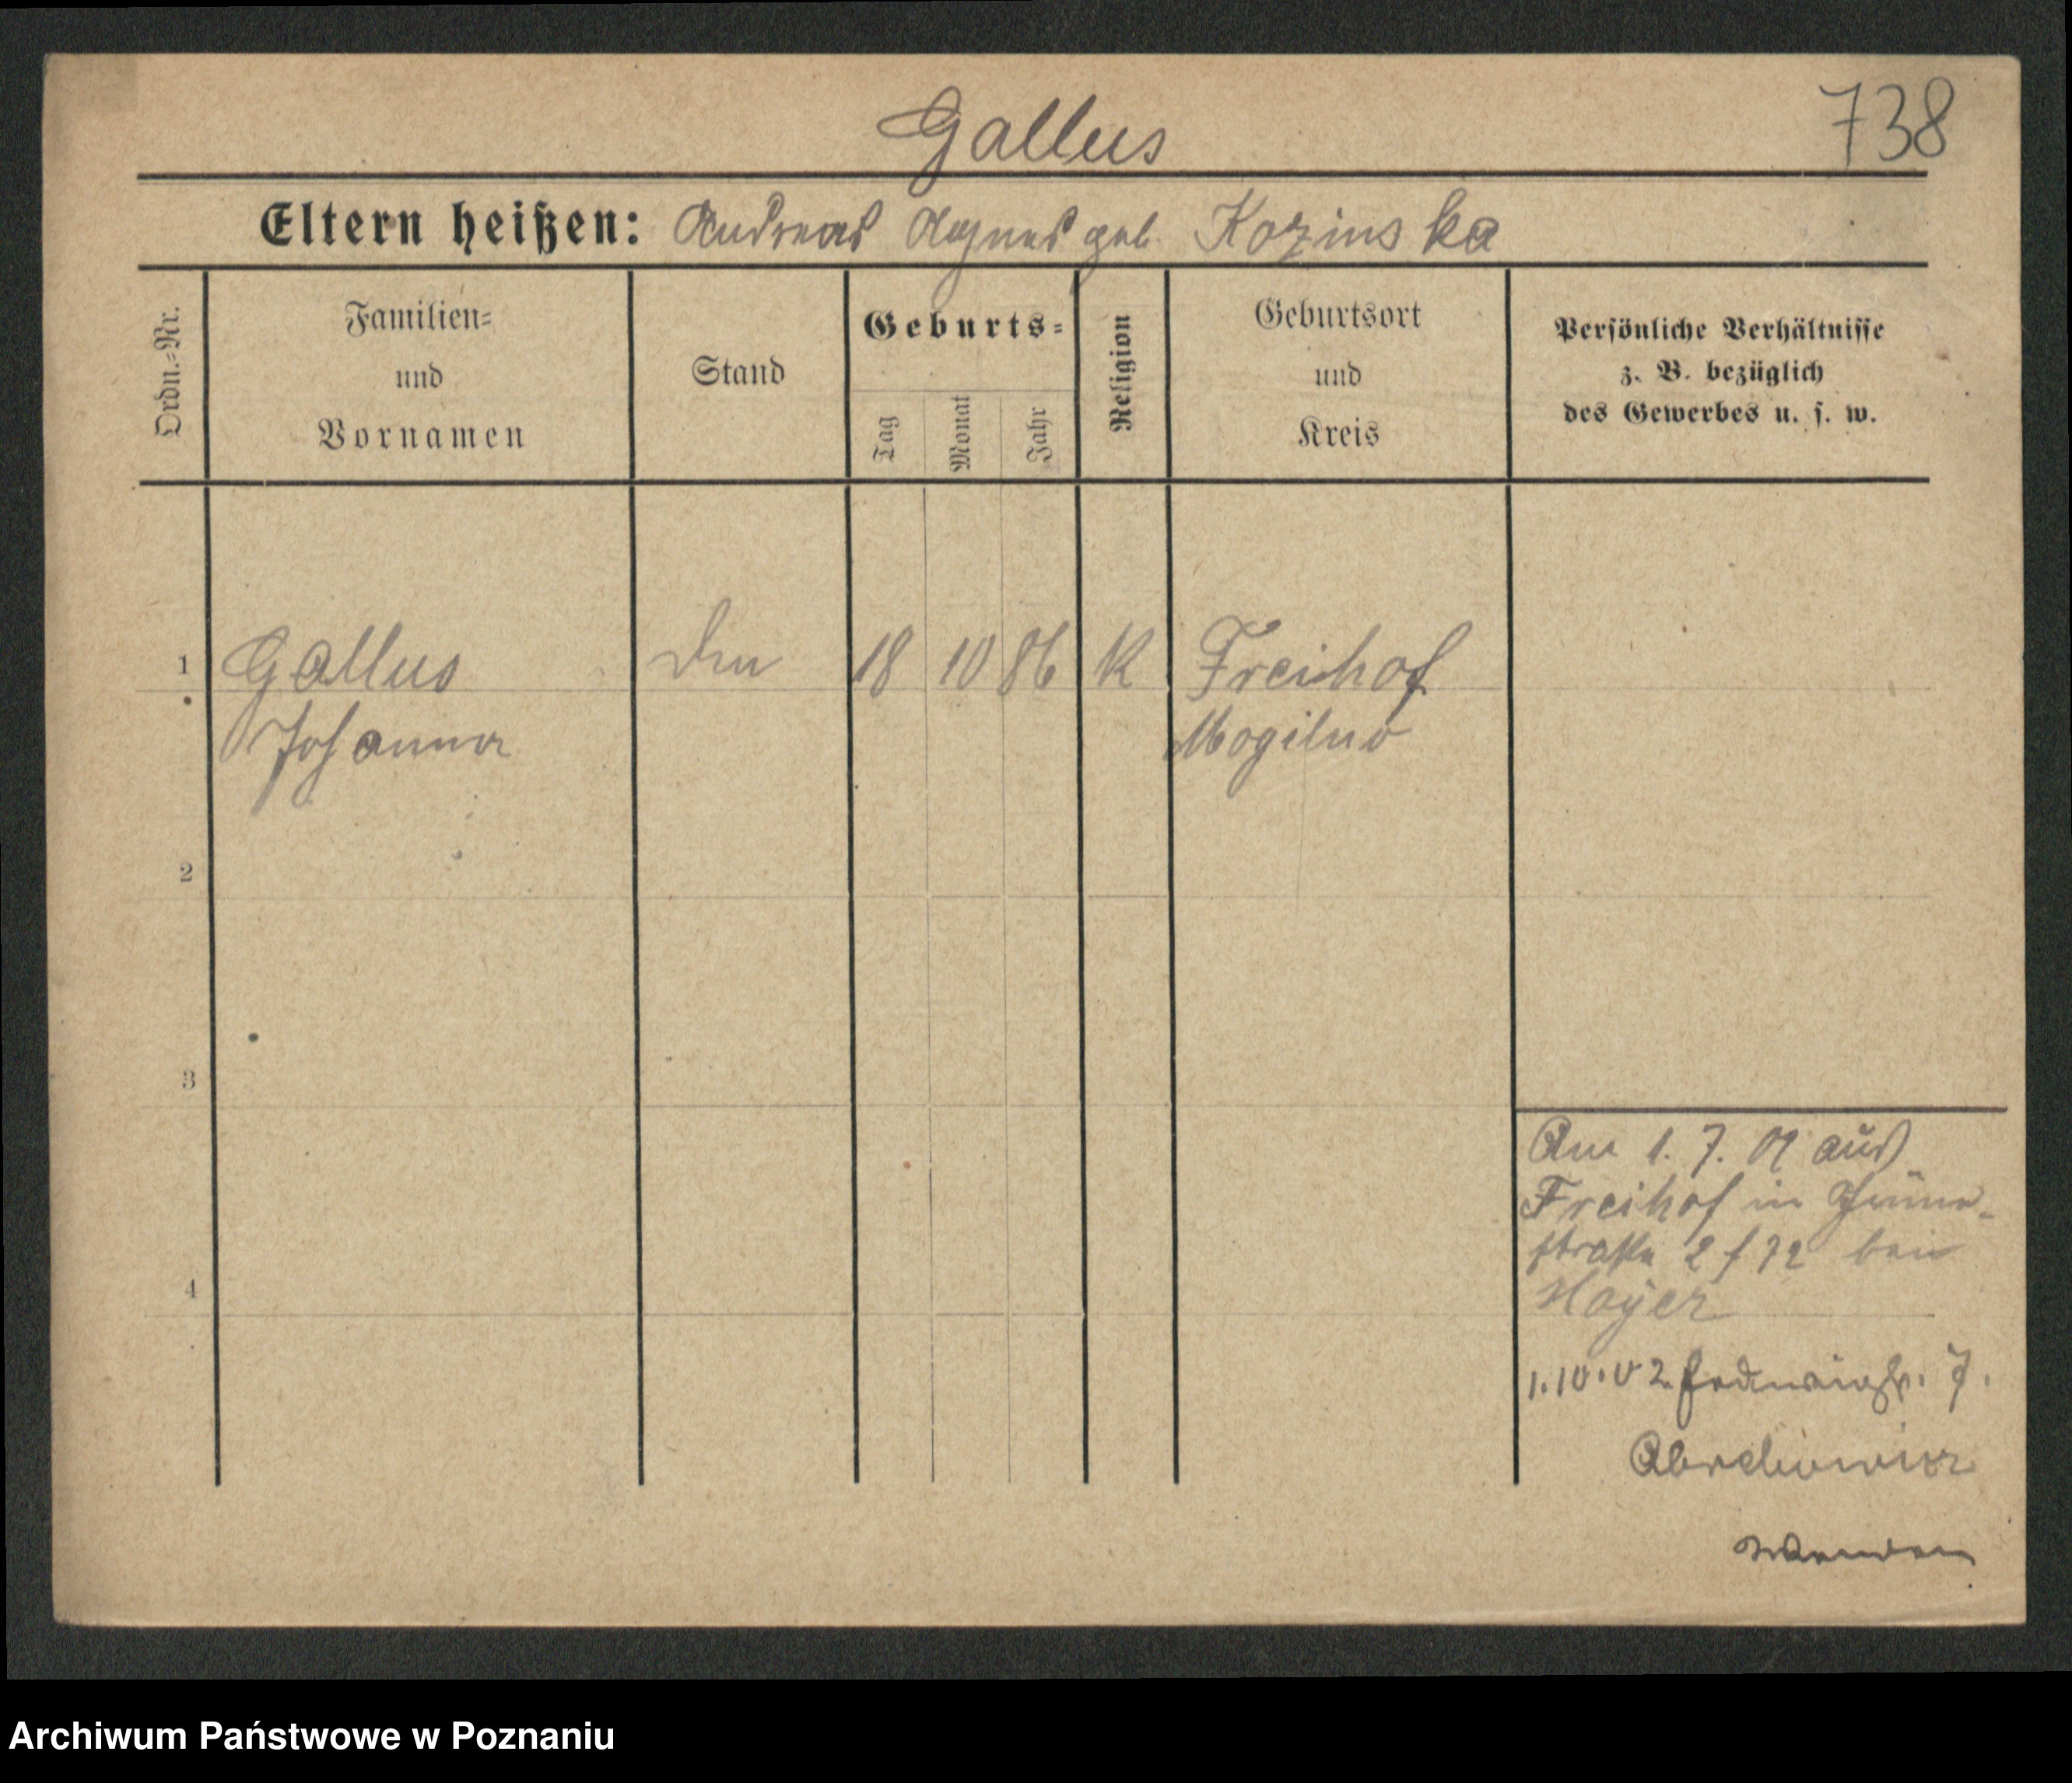 738
Gallus
Eltern heißen: Andreas Agnes geb. Kozinska
Ordn.-Nr.
Familien-
und
Vornamen
Stand
Geburts-
Tag
Monat
Jahr
Religion
Geburtsort
und
Kreis
Persönliche Verhältnisse
z. B. bezüglich
des Gewerbes u. s. w.
1
Gallus
18
10
86
K
Freihof
Johanna
Mogilno
2
3
4
Am 1. 7. 01 aus
Freihof in Grüne-
straße 2 f 72 bei
Hoyer
1.10.02 7.
Archiwum Państwowe w Poznaniu